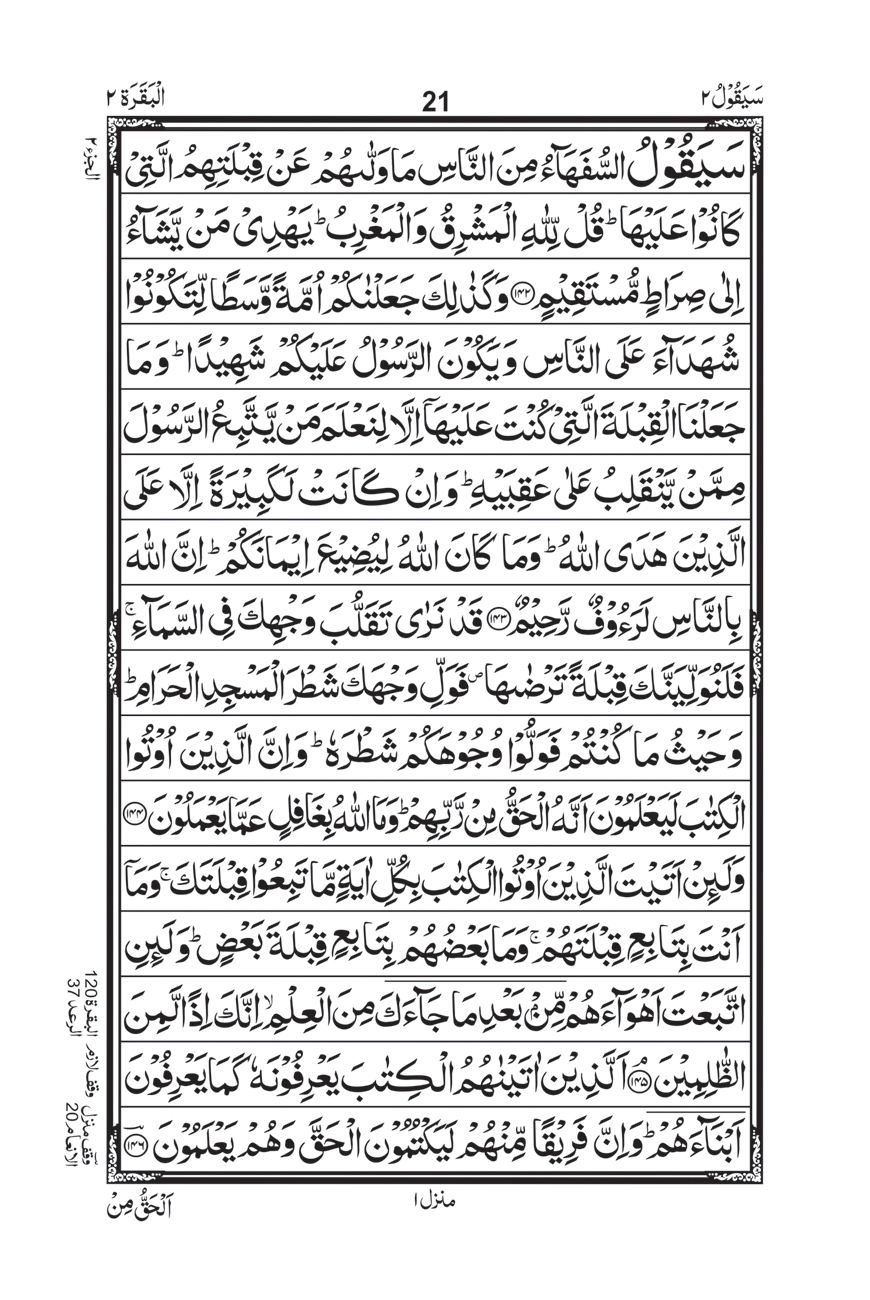 سَيَقُوْلُ ٢
21
الْبَقَرَة ٢
الجزء ٢
سَيَقُوْلُ السُّفَهَآءُ مِنَ النَّاسِ مَا وَلّٰىهُمْ عَنْ قِبْلَتِهِمُ الَّتِىْ
كَانُوْا عَلَيْهَا ؕ قُلْ لِّلّٰهِ الْمَشْرِقُ وَالْمَغْرِبُ ؕ يَهْدِىْ مَنْ يَّشَآءُ
اِلٰى صِرَاطٍ مُّسْتَقِيْمٍ ﴿١٤٢﴾ وَكَذٰلِكَ جَعَلْنٰكُمْ اُمَّةً وَّسَطًا لِّتَكُوْنُوْا
شُهَدَآءَ عَلَى النَّاسِ وَيَكُوْنَ الرَّسُوْلُ عَلَيْكُمْ شَهِيْدًا ؕ وَمَا
جَعَلْنَا الْقِبْلَةَ الَّتِىْ كُنْتَ عَلَيْهَآ اِلَّا لِنَعْلَمَ مَنْ يَّتَّبِعُ الرَّسُوْلَ
مِمَّنْ يَّنْقَلِبُ عَلٰى عَقِبَيْهِ ؕ وَاِنْ كَانَتْ لَكَبِيْرَةً اِلَّا عَلَى
الَّذِيْنَ هَدَى اللّٰهُ ؕ وَمَا كَانَ اللّٰهُ لِيُضِيْعَ اِيْمَانَكُمْ ؕ اِنَّ اللّٰهَ
بِالنَّاسِ لَرَءُوْفٌ رَّحِيْمٌ ﴿١٤٣﴾ قَدْ نَرٰى تَقَلُّبَ وَجْهِكَ فِى السَّمَآءِ ۚ
فَلَنُوَلِّيَنَّكَ قِبْلَةً تَرْضٰىهَا ۪ فَوَلِّ وَجْهَكَ شَطْرَ الْمَسْجِدِ الْحَرَامِ ؕ
وَحَيْثُ مَا كُنْتُمْ فَوَلُّوْا وُجُوْهَكُمْ شَطْرَهٗ ؕ وَاِنَّ الَّذِيْنَ اُوْتُوا
الْكِتٰبَ لَيَعْلَمُوْنَ اَنَّهُ الْحَقُّ مِنْ رَّبِّهِمْ ؕ وَمَا اللّٰهُ بِغَافِلٍ عَمَّا يَعْمَلُوْنَ ﴿١٤٤﴾
وَلَئِنْ اَتَيْتَ الَّذِيْنَ اُوْتُوا الْكِتٰبَ بِكُلِّ اٰيَةٍ مَّا تَبِعُوْا قِبْلَتَكَ ۚ وَمَآ
اَنْتَ بِتَابِعٍ قِبْلَتَهُمْ ۚ وَمَا بَعْضُهُمْ بِتَابِعٍ قِبْلَةَ بَعْضٍ ؕ وَلَئِنِ
اتَّبَعْتَ اَهْوَآءَهُمْ مِّنْۢ بَعْدِ مَا جَآءَكَ مِنَ الْعِلْمِ ۙ اِنَّكَ اِذًا لَّمِنَ
الظّٰلِمِيْنَ ﴿١٤٥﴾ۘ اَلَّذِيْنَ اٰتَيْنٰهُمُ الْكِتٰبَ يَعْرِفُوْنَهٗ كَمَا يَعْرِفُوْنَ
اَبْنَآءَهُمْ ؕ وَاِنَّ فَرِيْقًا مِّنْهُمْ لَيَكْتُمُوْنَ الْحَقَّ وَهُمْ يَعْلَمُوْنَ ﴿١٤٦﴾
البقرة 120
الرعد 37
وقف منزل وقف لازم
الانعام 20
منزل ١
اَلْحَقُّ مِنْ